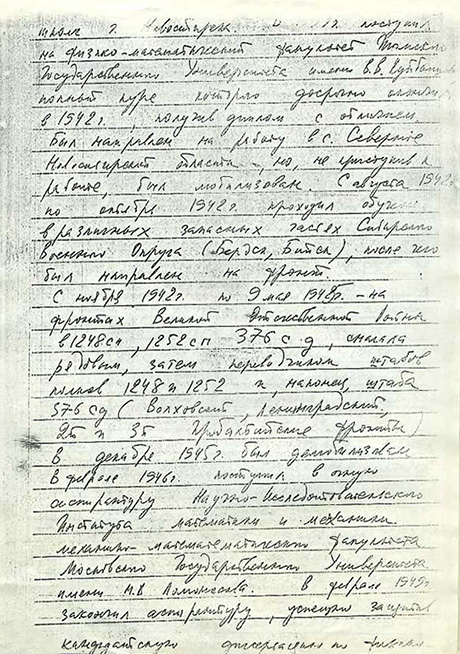 школу г. Новосибирск. В поступил
на физико-математический факультет Томского
Государственного Университета имени В.В. Куйбышева
полный курс которого досрочно окончил
в 1942г., получив диплом с отличием.
Был направлен на работу в с. Северное
Новосибирской области, но, не приступив к
работе, был мобилизован. С августа 1942
по октябрь 1942г. проходил обучение
в различных запасных частях Сибирского
Военного Округа (Бердск, Бийск), после чего
был направлен на фронт.
С ноября 1942г. по 9 мая 1945г. - на
фронтах Великой Отечественной войны
в 1248сп, 1252сп 376 с.д., сначала
рядовым, затем переводчиком штабов
полков 1248 и 1252 и, наконец, штаба
376 сд (Волховский, Ленинградский,
2й и 3й Прибалтийские фронты)
В декабре 1945г. был демобилизован
В феврале 1946г. поступил в очную
аспирантуру Научно-исследовательского
Института математики и механики
механико-математического факультета
Московского Государственного Университета
имени М.В. Ломоносова. В феврале 1949г
закончил аспирантуру, успешно защитив
кандидатскую диссертацию по